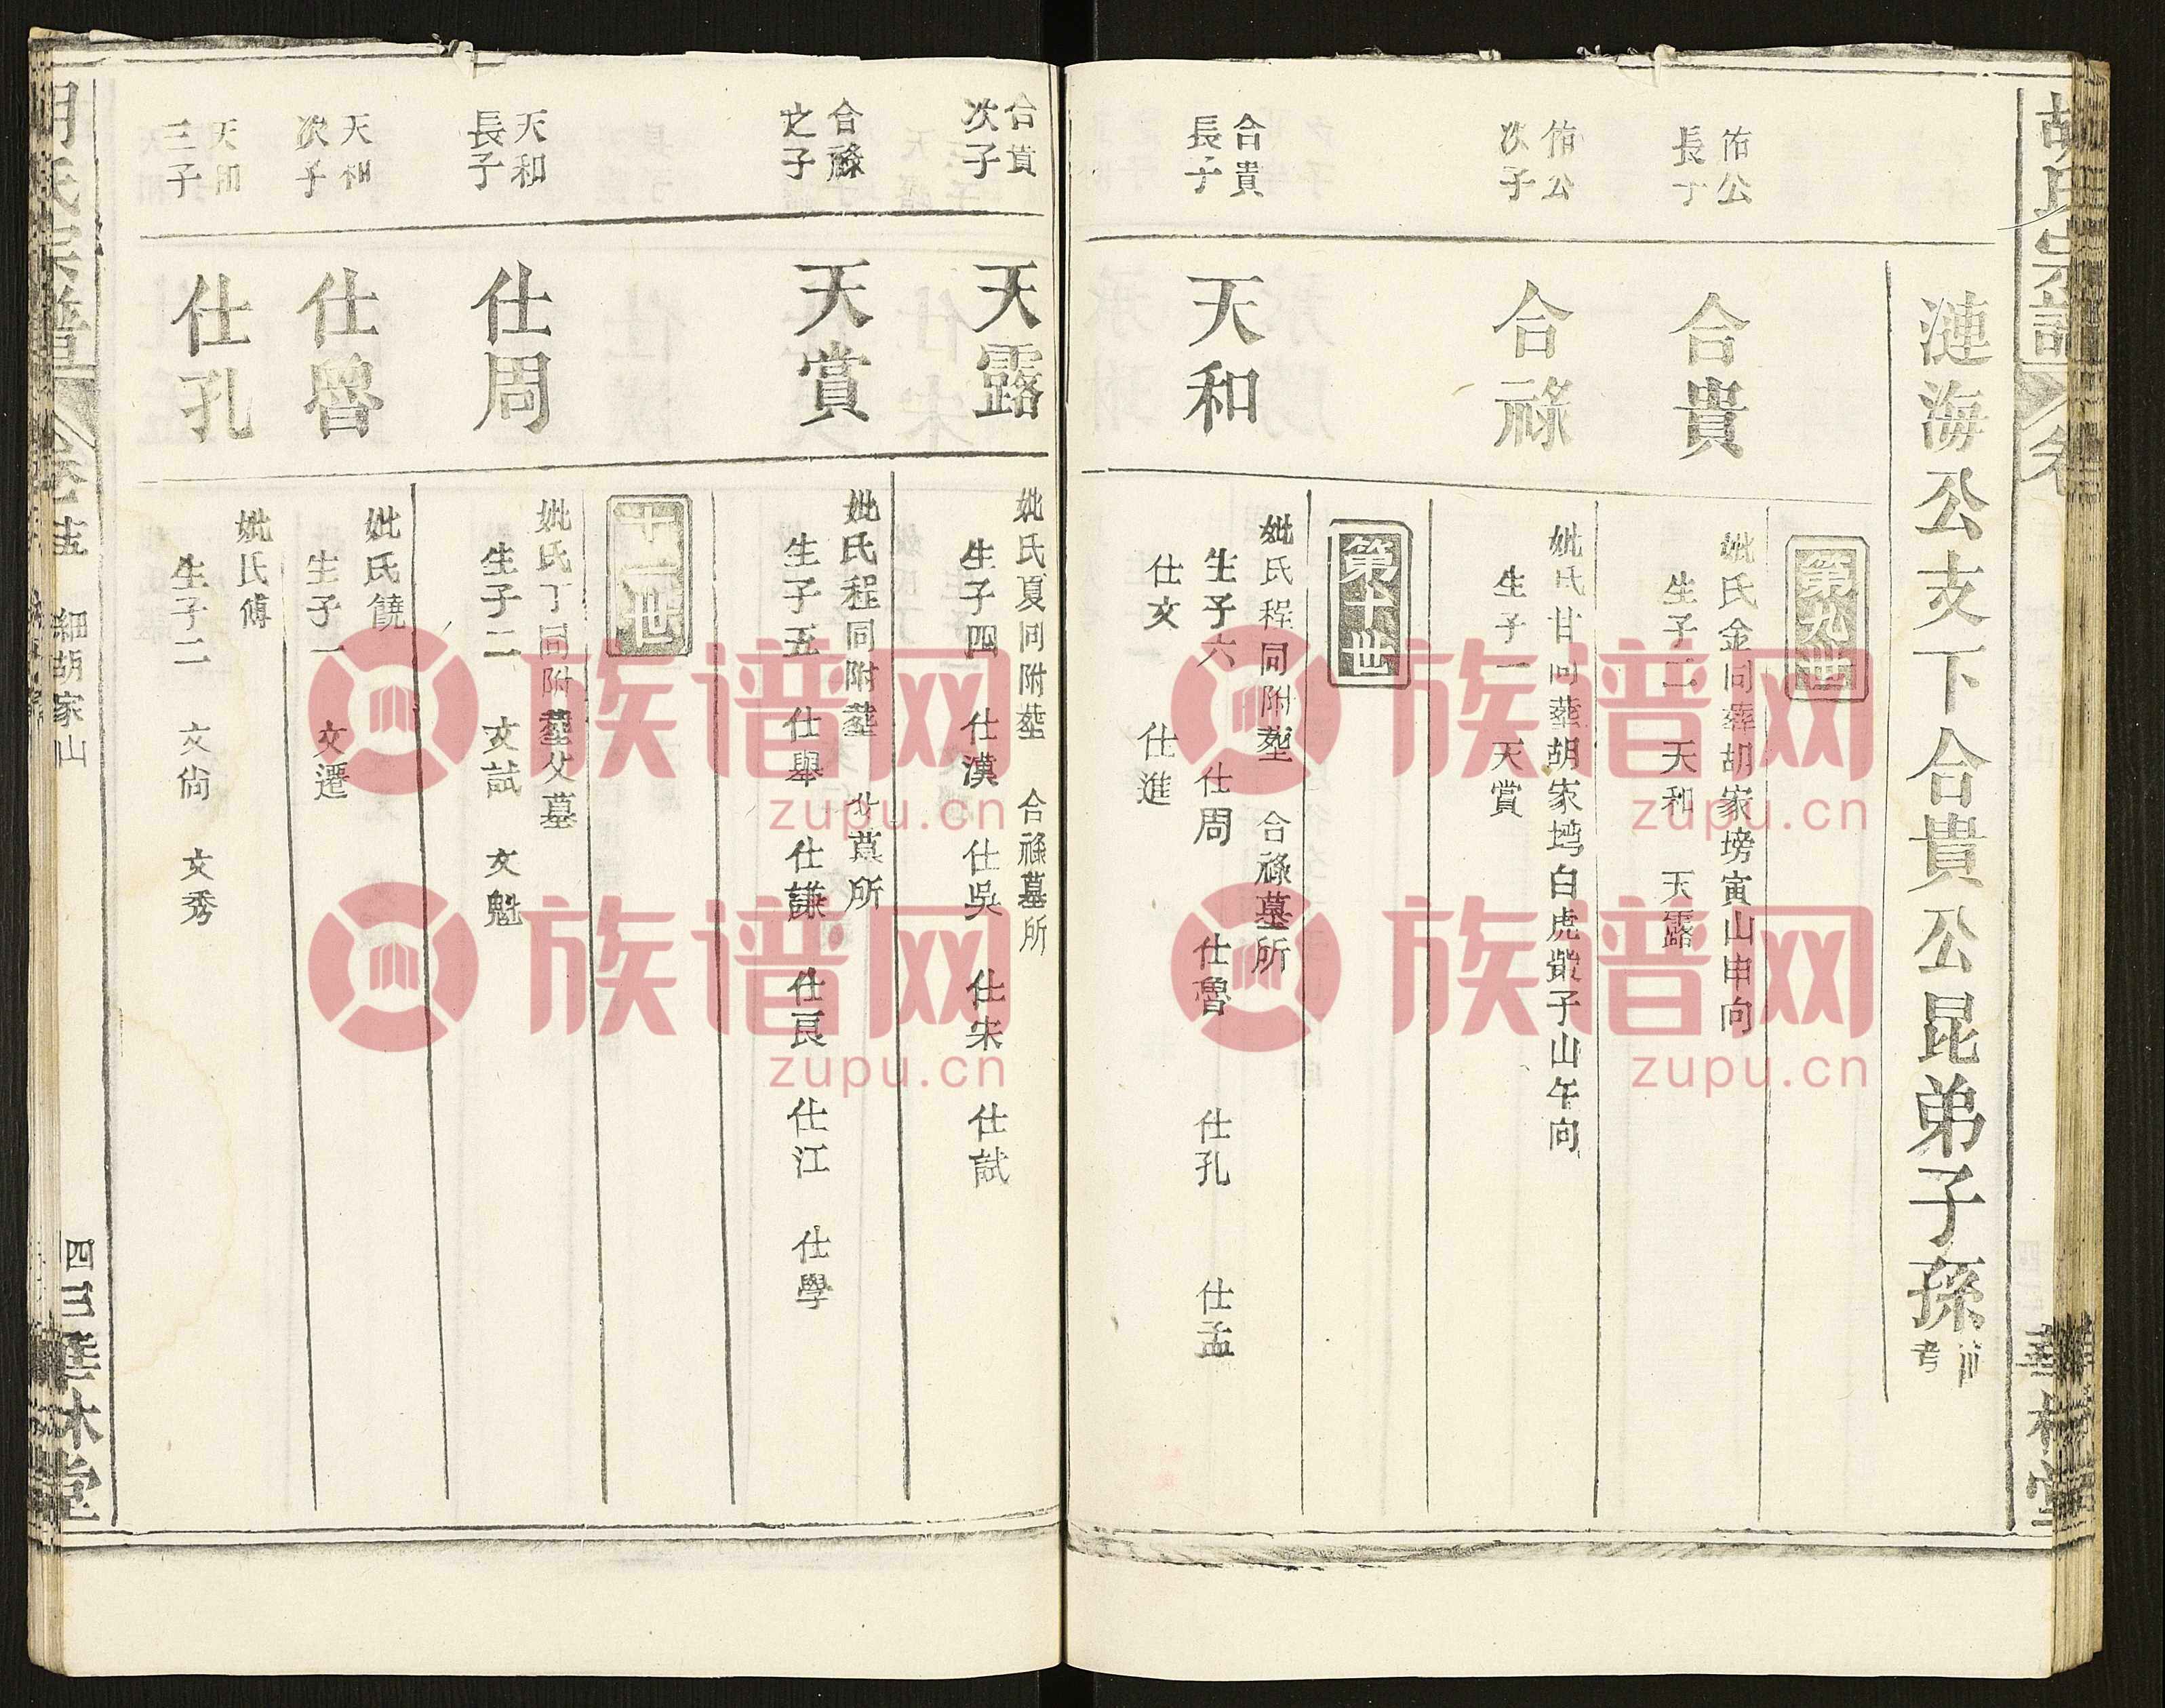 胡氏宗譜
華林堂
漣海公支下合貴公昆弟子孫
第九世
佑公
長子
合貴
妣氏金同葬胡家塝寅山申向
生子二 天和 天露
佑公
次子
合祿
妣氏甘同葬胡家塆白虎嘴子山午向
生子一 天賞
第十世
合貴
長子
天和
妣氏程同附葬 合祿墓所
生子六 仕周 仕魯 仕孔 仕孟
仕文 仕進
合貴
次子
天露
妣氏夏同附葬 合祿墓所
生子四 仕漢 仕吳 仕宋 仕試
合祿
之子
天賞
妣氏程同附葬 父墓所
生子五 仕舉 仕謙 仕良 仕江 仕學
十一世
天和
長子
仕周
妣氏丁同附葬父墓
生子二 文試 文魁
天和
次子
仕魯
妣氏饒
生子一 文遷
天和
三子
仕孔
妣氏傅
生子二 文尙 文秀
胡氏宗譜
卷十五 細胡家山
四三 華林堂
族谱网
zupu.cn
族谱网
zupu.cn
族谱网
zupu.cn
族谱网
zupu.cn